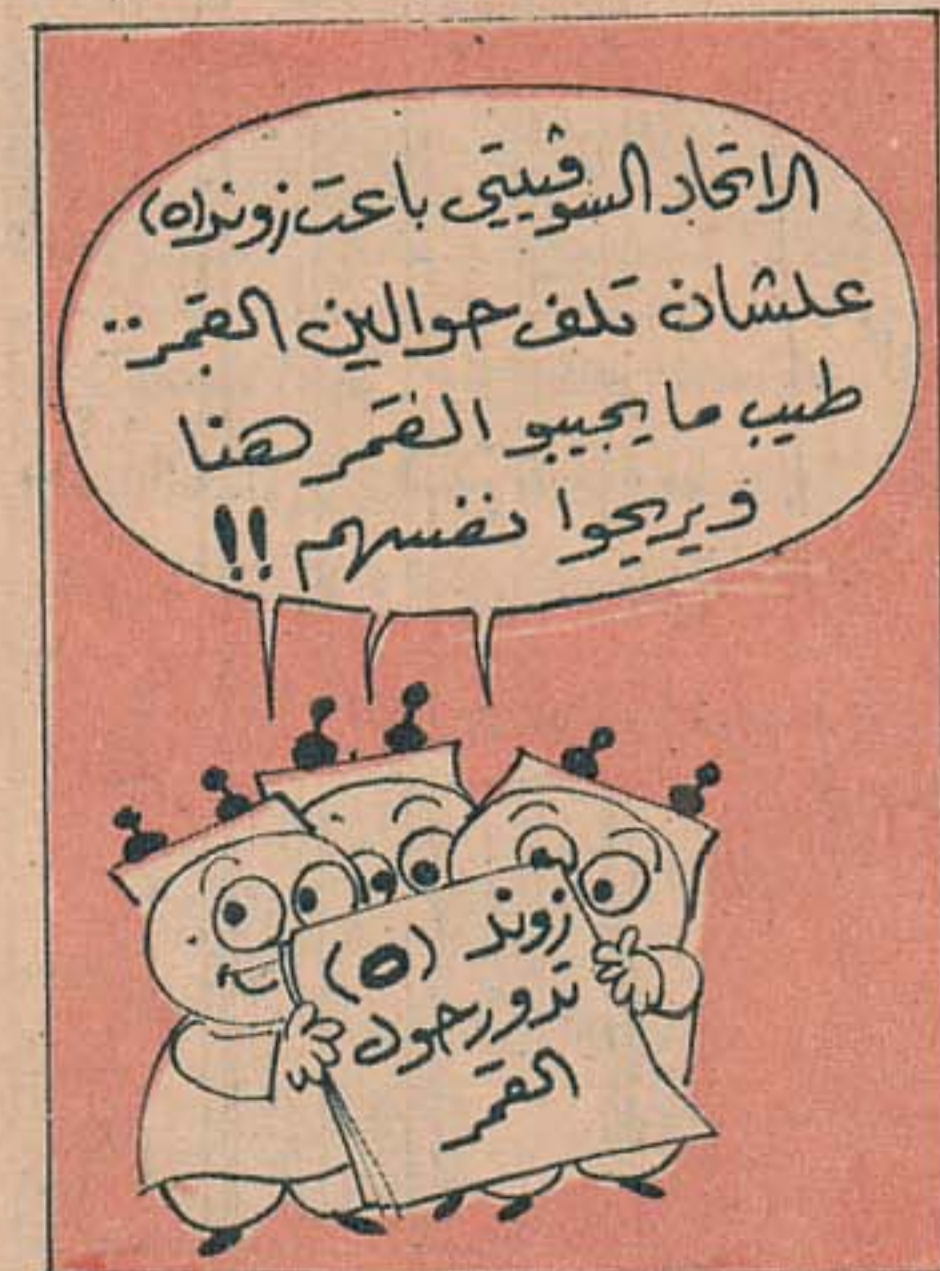 الاتحاد السوڤييتي باعت زوند (٥)
علشان تلف حوالين القمر ..
طيب ما يجيبو القمر هنا
ويريحوا نفسهم !!
زوند (٥)
تدور حول
القمر